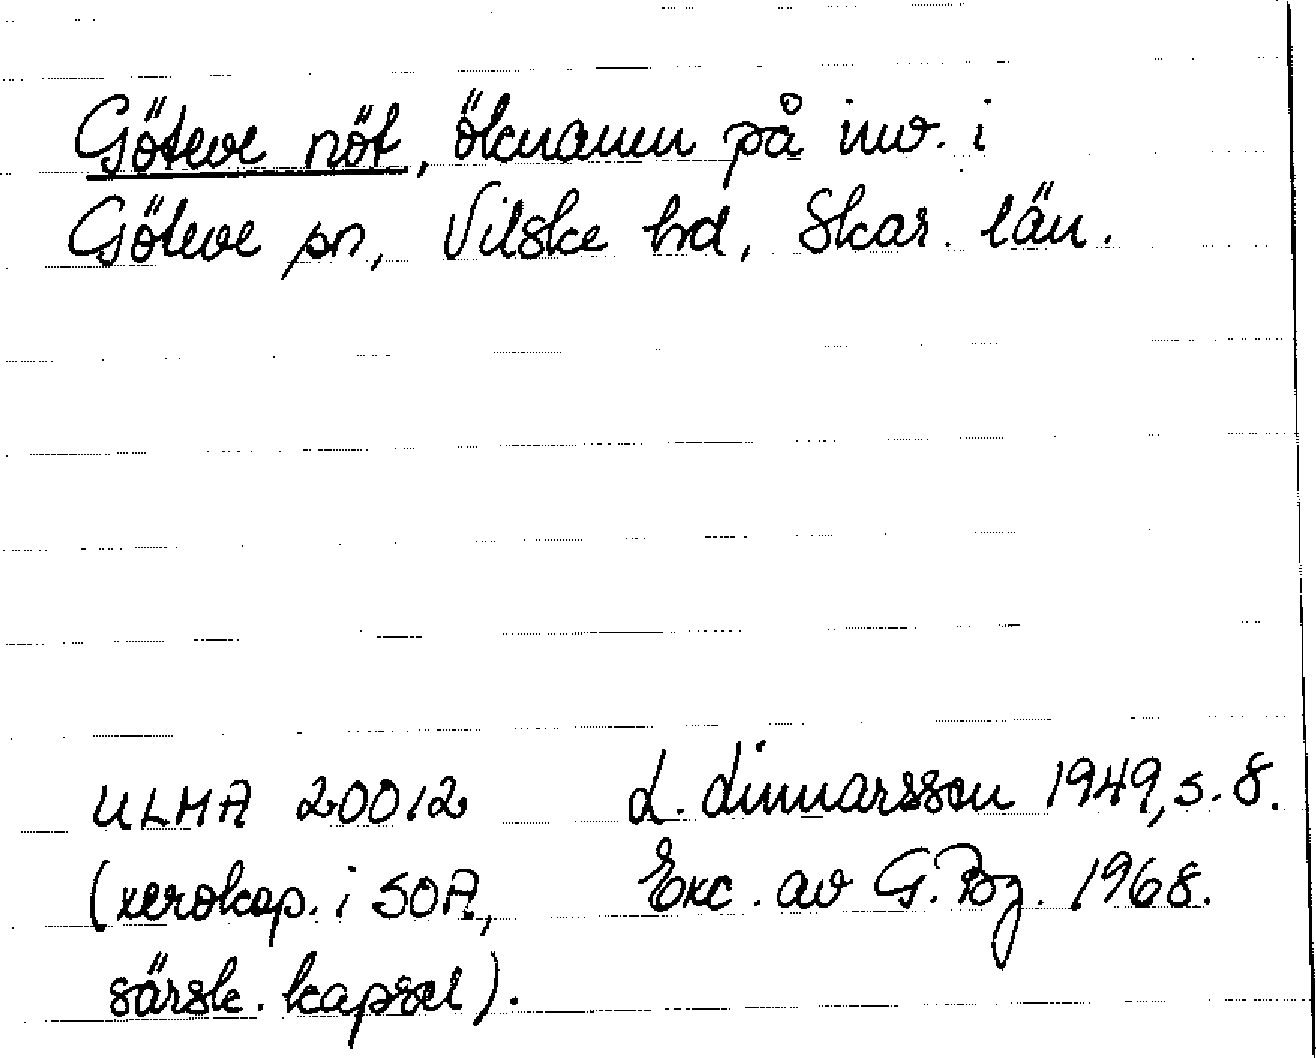 Göteve nöt, öknamn på inv. i
Göteve sn, Vilske hd, Skar. län.
ULMA 20012 L. Linnarsson 1949, s. 8.
(xerokop. i SOA, Exc. av G. Bg. 1968.
särsk. kapsel).